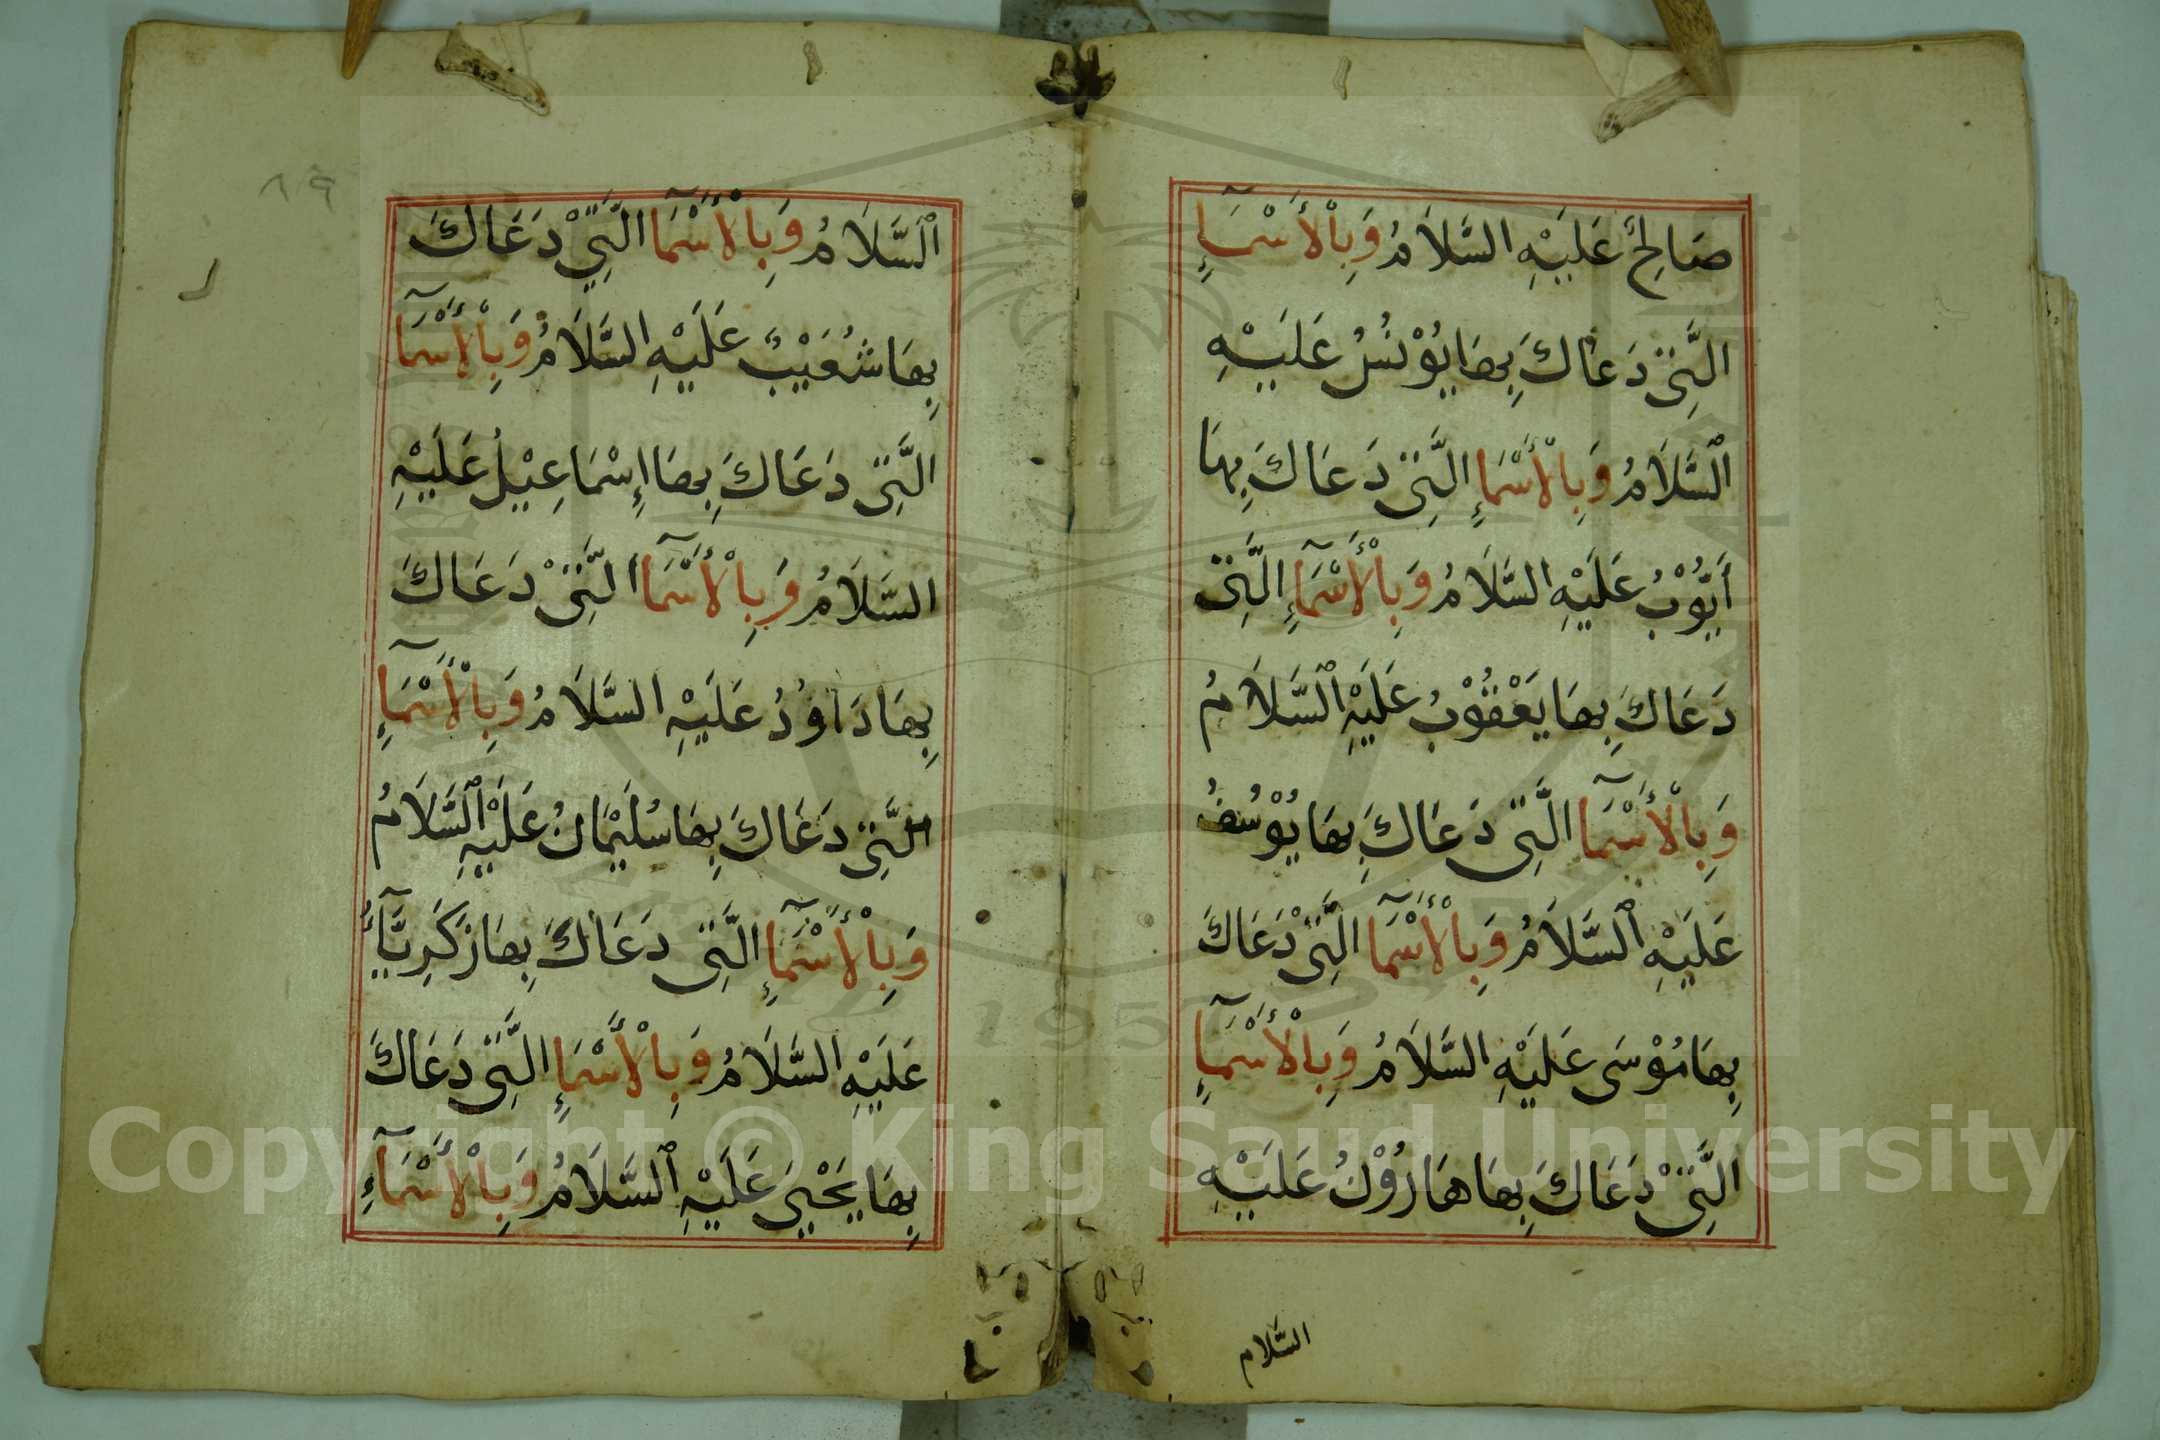 صَالِحٌ عَلَيْهِ السَّلَامُ وَبِالْأَسْمَآءِ
الَّتِى دَعَاكَ بِهَا يُوْنُسُ عَلَيْهِ
اَلسَّلَامُ وَبِالْأَسْمَاءِ الَّتِى دَعَاكَ بِهَا
أَيُّوْبُ عَلَيْهِ السَّلَامُ وَبِالْأَسْمَآءِ الَّتِى
دَعَاكَ بِهَا يَعْقُوْبُ عَلَيْهِ السَّلَامُ
وَبِالْأَسْمَآ الَّتِى دَعَاكَ بِهَا يُوْسُفُ
عَلَيْهِ السَّلَامُ وَبِالْأَسْمَآ الَّتِىْ دَعَاكَ
بِهَا مُوْسَى عَلَيْهِ السَّلَامُ وَبِالْأَسْمَآءِ
الَّتِىْ دَعَاكَ بِهَا هَارُوْنُ عَلَيْهِ
السَّلام
اَلسَّلَامُ وَبِالْأَسْمَآ الَّتِيْ دَعَاكَ
بِهَا شُعَيْبٌ عَلَيْهِ السَّلَامُ وَبِالْأَسْمَآ
الَّتِى دَعَاكَ بِهَا إِسْمَاعِيْلُ عَلَيْهِ
السَّلَامُ وَبِالْأَسْمَآ الَّتِىْ دَعَاكَ
بِهَا دَاوُدُ عَلَيْهِ السَّلَامُ وَبِالْأَسْمَآءِ
الَّتِى دَعَاكَ بِهَا سُلَيْمَانُ عَلَيْهِ السَّلَامُ
وَبِالْأَسْمَآءِ الَّتِى دَعَاكَ بِهَا زَكَرِيَّآءُ
عَلَيْهِ السَّلَامُ وَبِالْأَسْمَاءِ الَّتِى دَعَاكَ
بِهَا يَحْيَى عَلَيْهِ السَّلَامُ وَبِالْأَسْمَآءِ
Copyright © King Saud University